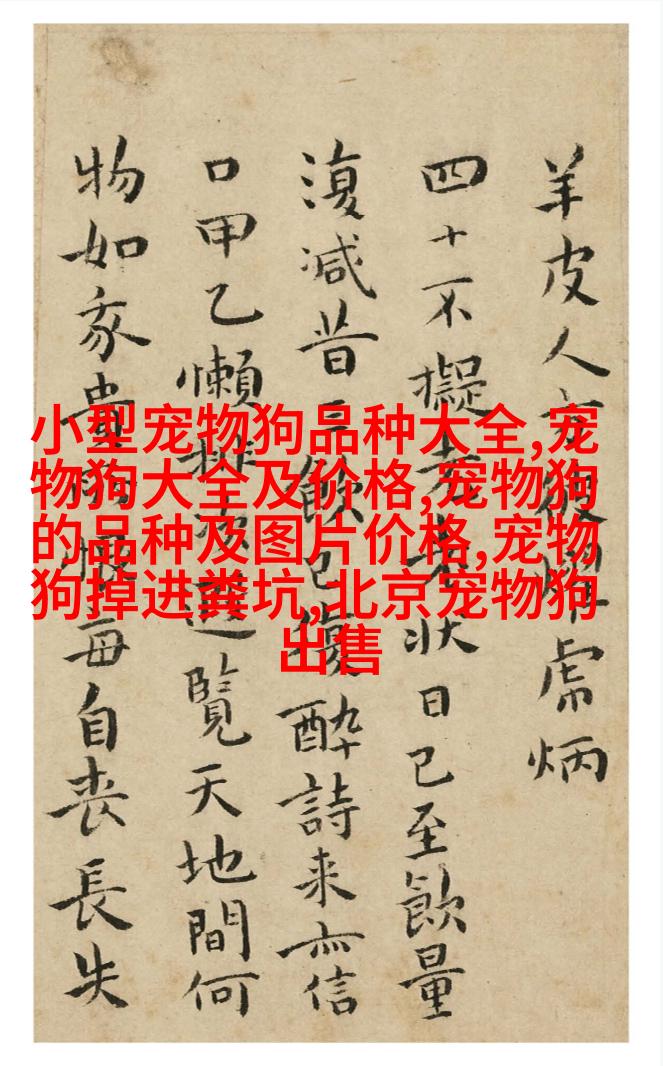 羊皮人
四十不擬老 状日已至飲量
復減昔三飲已復酔詩来亦信
口甲乙懶排 覧天地間何
物如 貴 毎自喪長失
小型宠物狗品种大全,宠
物狗大全及价格,宠物狗
的品种及图片价格,宠物
狗掉进粪坑,北京宠物狗
出售